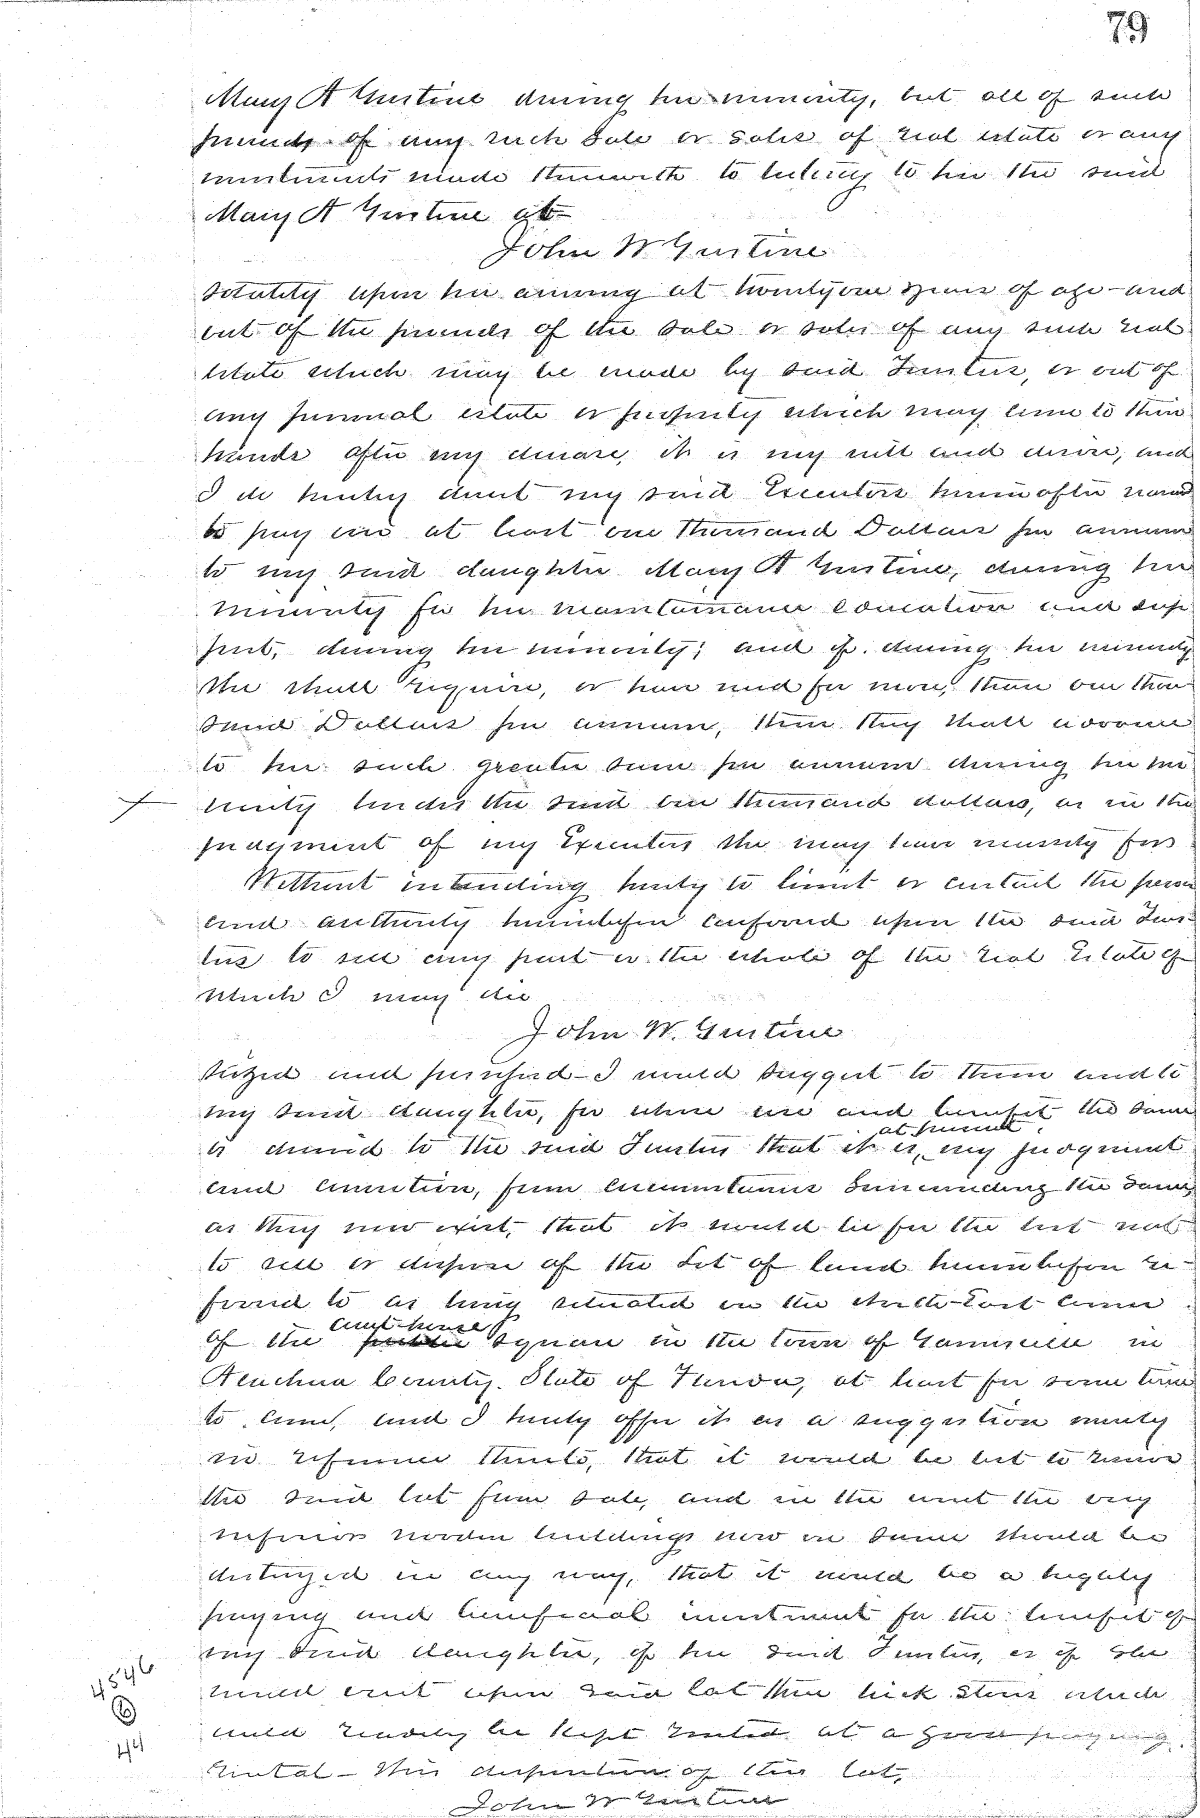 79
Mary A Gustine during her minority, but all of such
proceeds of any such Sale or Sales of real estate or any
investments made therewith to belong to her the said
Mary A Gustine ab-
John W Gustine
solutely upon her arriving at twentyone years of age - and
out of the proceeds of the sale or sales of any such real
Estate which may be made by said Trustees, or out of
any personal estate or property which may come to their
hands after my decease, it is my will and desire, and
I do hereby direct my said Executors hereinafter named
to pay over at least one thousand Dollars per annum
to my said daughter Mary A Gustine, during her
minority for her maintainance Education and sup
port, during her minority; and if during her minority
she shall require, or have need for more, than one thou
sand Dollars per annum, then they shall advance
to her such greater sum per annum during her mi
nority besides the said one thousand dollars, as in the
judgment of my Executors she may have necessity for
Without intending hereby to limit or curtail the power
and authority hereinbefore conferred upon the said Trus-
tees to sell any part or the whole of the real Estate of
which I may die
John W. Gustine
seized and possessed - I would suggest to them and to
my said daughter, for whose use and benefit the same
at present
is devised to the said Trustees that it is, my judgment
and conviction, from circumstances Surrounding the same,
as they now exist, that it would be for the best not
to sell or dispose of the Lot of land hereinbefore re-
ferred to as being situated on the North-East corner
court house
of the public square in the town of Gainesville in
Alachua County, State of Florida, at least for some time
to come, and I hereby offer it as a suggestion merely
in reference thereto, that it would be best to reserve
the said lot from sale, and in the event the very
inferior wooden buildings now on same should be
destroyed in any way, that it would be a highly
paying and beneficial investment for the benefit of
my said daughter, if her said Trustees, or if she
would erect upon said lot three brick Stores which
could readily be kept rented at a good paying
rental - this disposition of this lot,
John W Gustine
4546
6
44